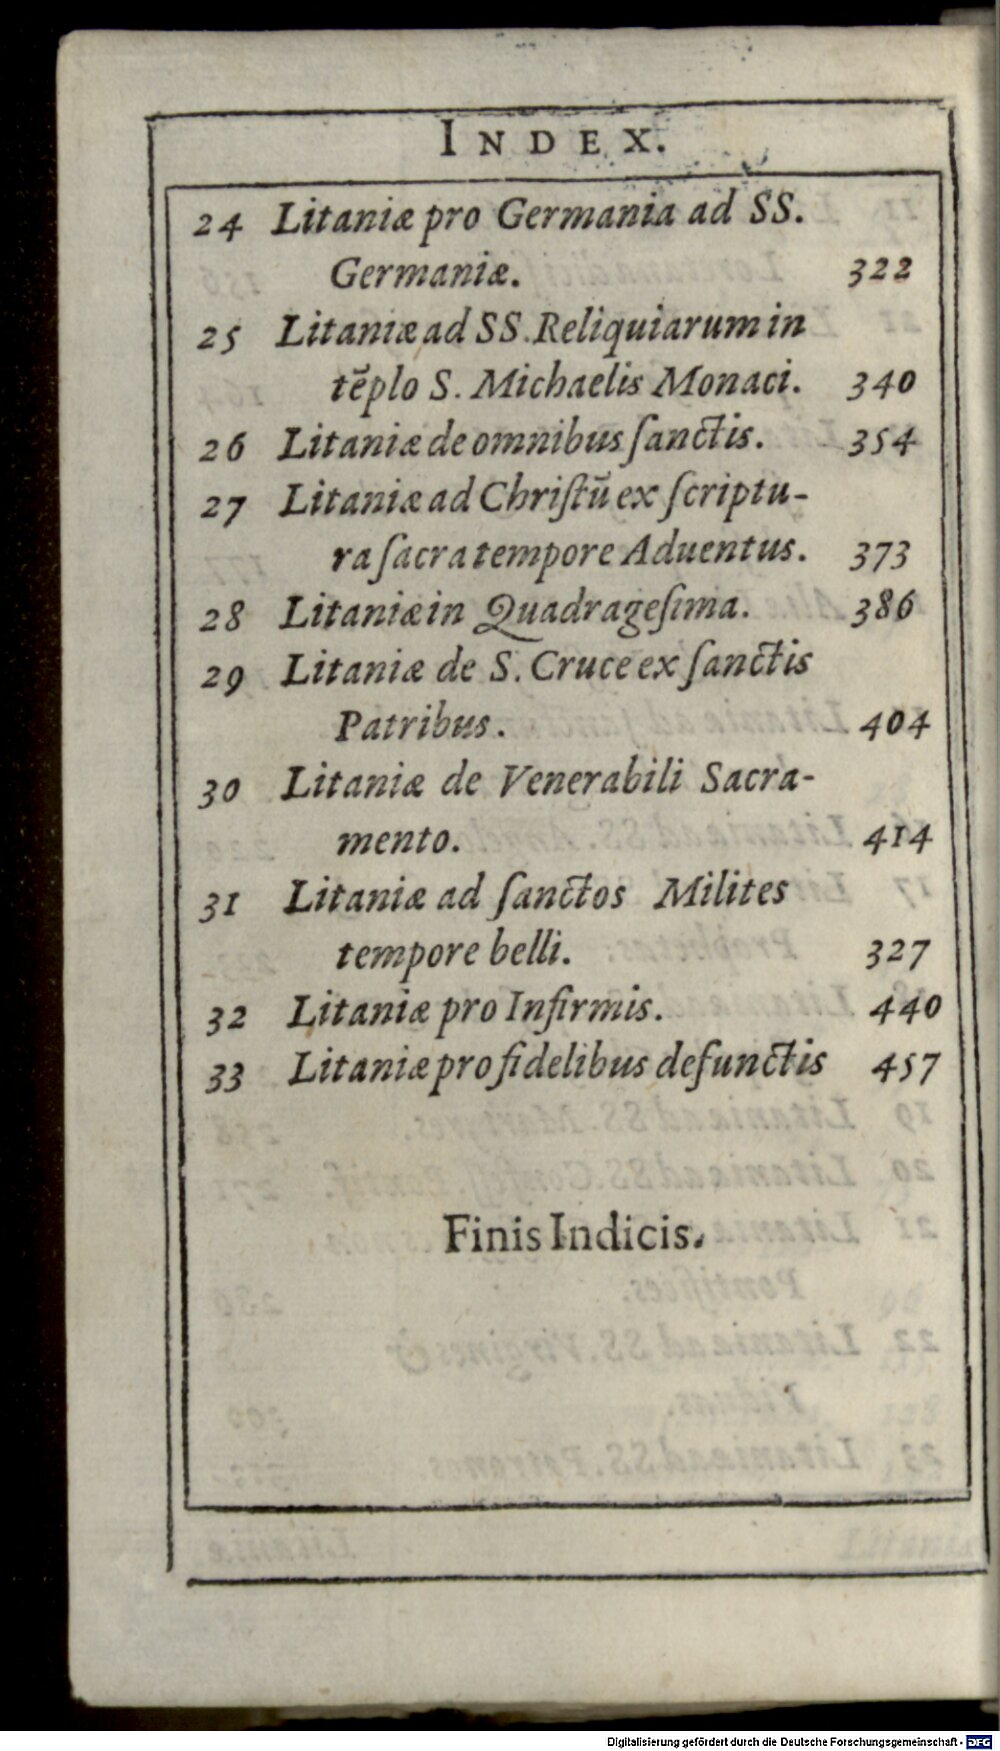 INDEX.
24 Litaniæ pro Germania ad SS.
Germaniæ. 322
25 Litaniæ ad SS. Reliquiarum in
tēplo S. Michaelis Monaci. 340
26 Litaniæ de omnibus ſanctis. 354
27 Litaniæ ad Chriſtū ex ſcriptu-
ra ſacra tempore Aduentus. 373
28 Litaniæ in Quadrageſima. 386
29 Litaniæ de S. Cruce ex ſanctis
Patribus. 404
30 Litaniæ de Venerabili Sacra-
mento. 414
31 Litaniæ ad ſanctos Milites
tempore belli. 327
32 Litaniæ pro Infirmis. 440
33 Litaniæ pro fidelibus defunctis 457
Finis Indicis.
Digitalisierung gefördert durch die Deutsche Forschungsgemeinschaft - DFG